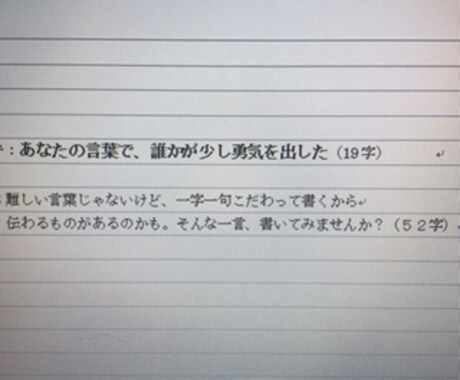 ：あなたの言葉で、誰かが少し勇気を出した（19字）
：難しい言葉じゃないけど、一字一句こだわって書くから
伝わるものがあるのかも。そんな一言、書いてみませんか？（５２字）